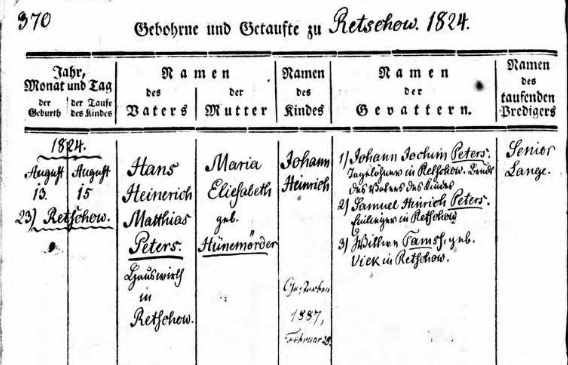 370
Gebohrne und Getaufte zu Retschow. 1824.
Jahr,
Monat und Tag
der Geburth
der Taufe des Kindes
Namen
des
Vaters
Namen
der
Mutter
Namen
des
Kindes
Namen
der
Gevattern.
Namen
des
taufenden
Predigers
1824.
August August
13. 15
23) Retschow.
Hans
Heinerich
Matthias
Peters.
Hauswirth
in
Retschow.
Maria
Eliesabeth
geb.
Hünemörder
Johann
Heinrich
Gestorben
1887,
Februar
1) Johann Jochim Peters.
Tagelöhner in Retschow. Bruder
des Vaters des Kindes
2) Samuel Heinrich Peters.
Einlieger in Retschow
3) Wittwe Tamss, geb.
Viek in Retschow.
Senior
Lange.